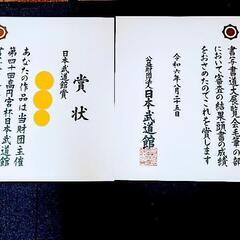 賞状
日本武道館賞
あなたの作品は当財団主催
第四十回高円宮杯日本武道館
書写書道大展覧会毛筆の部
において審査の結果頭書の成績
をおさめたのでこれを賞します
令和六年八月二十五日
公益財団法人日本武道館